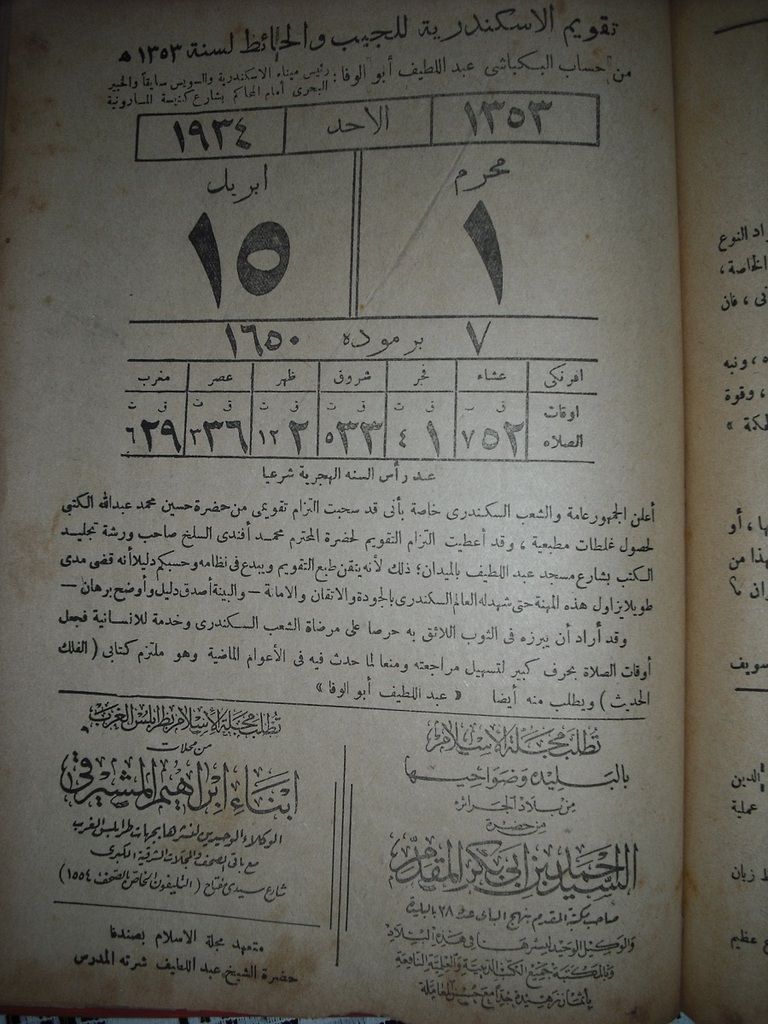 تقويم الاسكندرية للجيب والحائط لسنة ١٣٥٣ ه
من حساب البكباشى عبد اللطيف أبو الوفا : رئيس ميناء الاسكندرية والسويس سابقا والخبير
البحرى أمام المحاكم بشارع كنيسة المارونية
١٣٥٣ الاحد ١٩٣٤
محرم ابريل
١ ١٥
٧ برموده ١٦٥٠
افرنكى عشاء فجر شروق ظهر عصر مغرب
اوقات ق ق ت ق ت ق ت ق ت ق ت
الصلاه ٧ ٥٢ ٤ ١ ٥ ٣٣ ١٢ ٢ ٣ ٣٦ ٦ ٢٩
عيد رأس السنه الهجرية شرعيا
أعلن الجمهور عامة والشعب السكندرى خاصة بأنى قد سحبت التزام تقويمى من حضرة حسين محمد عبدالله الكتبى
لحصول غلطات مطبعية ، وقد أعطيت التزام التقويم لحضرة المحترم محمد أفندى السلخ صاحب ورشة تجليد
الكتب بشارع مسجد عبد اللطيف بالميدان؛ ذلك لأنه يتقن طبع التقويم ويبدع فى نظامه وحسبكم دليلا أنه قضى مدى
طويلا يزاول هذه المهنة حتى شهد له العالم السكندرى بالجودة والاتقان والامانة — والبينة أصدق دليل وأوضح برهان —
وقد أراد أن يبرزه فى الثوب اللائق به حرصا على مرضاة الشعب السكندرى وخدمة للانسانية فجعل
أوقات الصلاة بحرف كبير لتسهيل مراجعته ومنعا لما حدث فيه فى الأعوام الماضية وهو ملتزم كتابى ( الفلك
الحديث ) ويطلب منه أيضا « عبد اللطيف أبو الوفا »
تطلب مجلة الاسلام
بالبليدة وضواحيها
من بلاد الجزائر
من حضرة
السيد احمد بن ابى بكر المقدم
صاحب مكتبة المقدم بنهج الباى عدد ٢٨ بالبليدة
والوكيل الوحيد لنشرها فى هذه البلاد
وبالمكتبة جميع الكتب الدينية والعلمية النافعة
بأثمان زهيدة جدا مع حسن المعاملة
تطلب مجلة الاسلام بطرابلس الغرب
من محلات
ابناء ابراهيم المشيرقى
الوكلاء الوحيدين لنشرها بجهات طرابلس الغرب
مع باقى الصحف والمجلات الشرقية الكبرى
شارع سيدى مفتاح ( التليفون الخاص بالصحف ١٥٥٤ )
متعهد مجلة الاسلام بصندفا
حضرة الشيخ عبد اللطيف شرته المدرس
راد النوع
الخاصة ،
، فان
، ونبه
، وقوة
»
ها ، أو
هذا من
سويف
الدين
عملية
زبان
عظيم